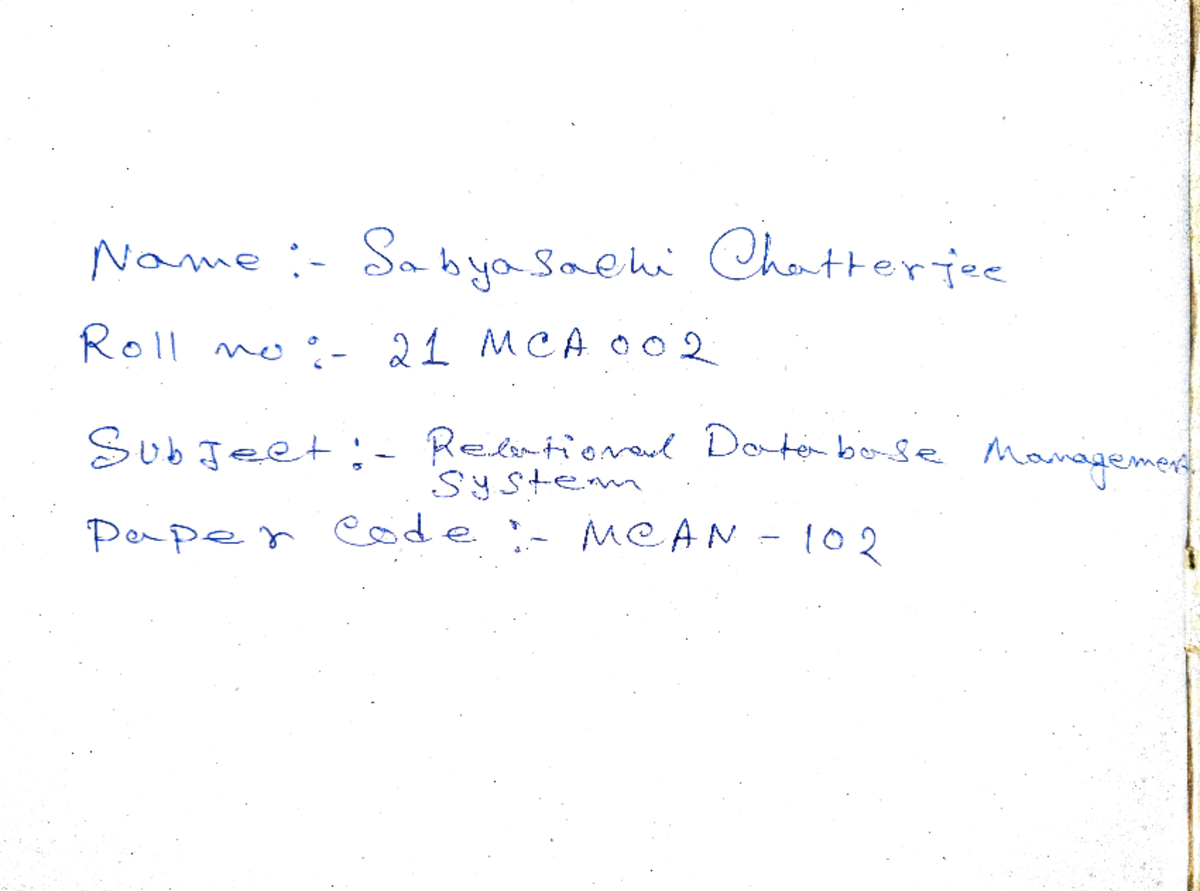 Name :- Sabyasachi Chatterjee
Roll no :- 21 MCA 002
Subject :- Relational Database Management
System
Paper code :- MCAN - 102